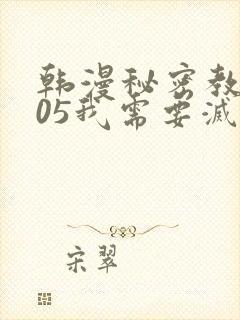 韩漫秘密教
05我需要滅
宋翠